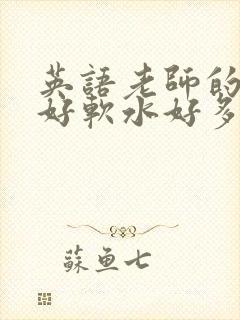 英語老師的
好軟水好多
蘇魚七